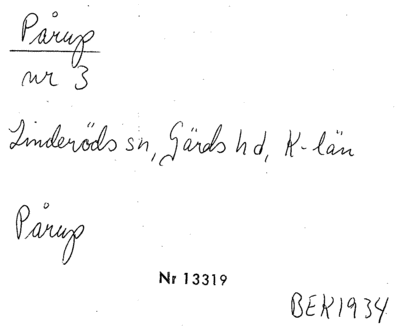 Pårup
nr 3
Linderöds sn, Gärds hd, K-län
Pårup
Nr 13319
BEK1934